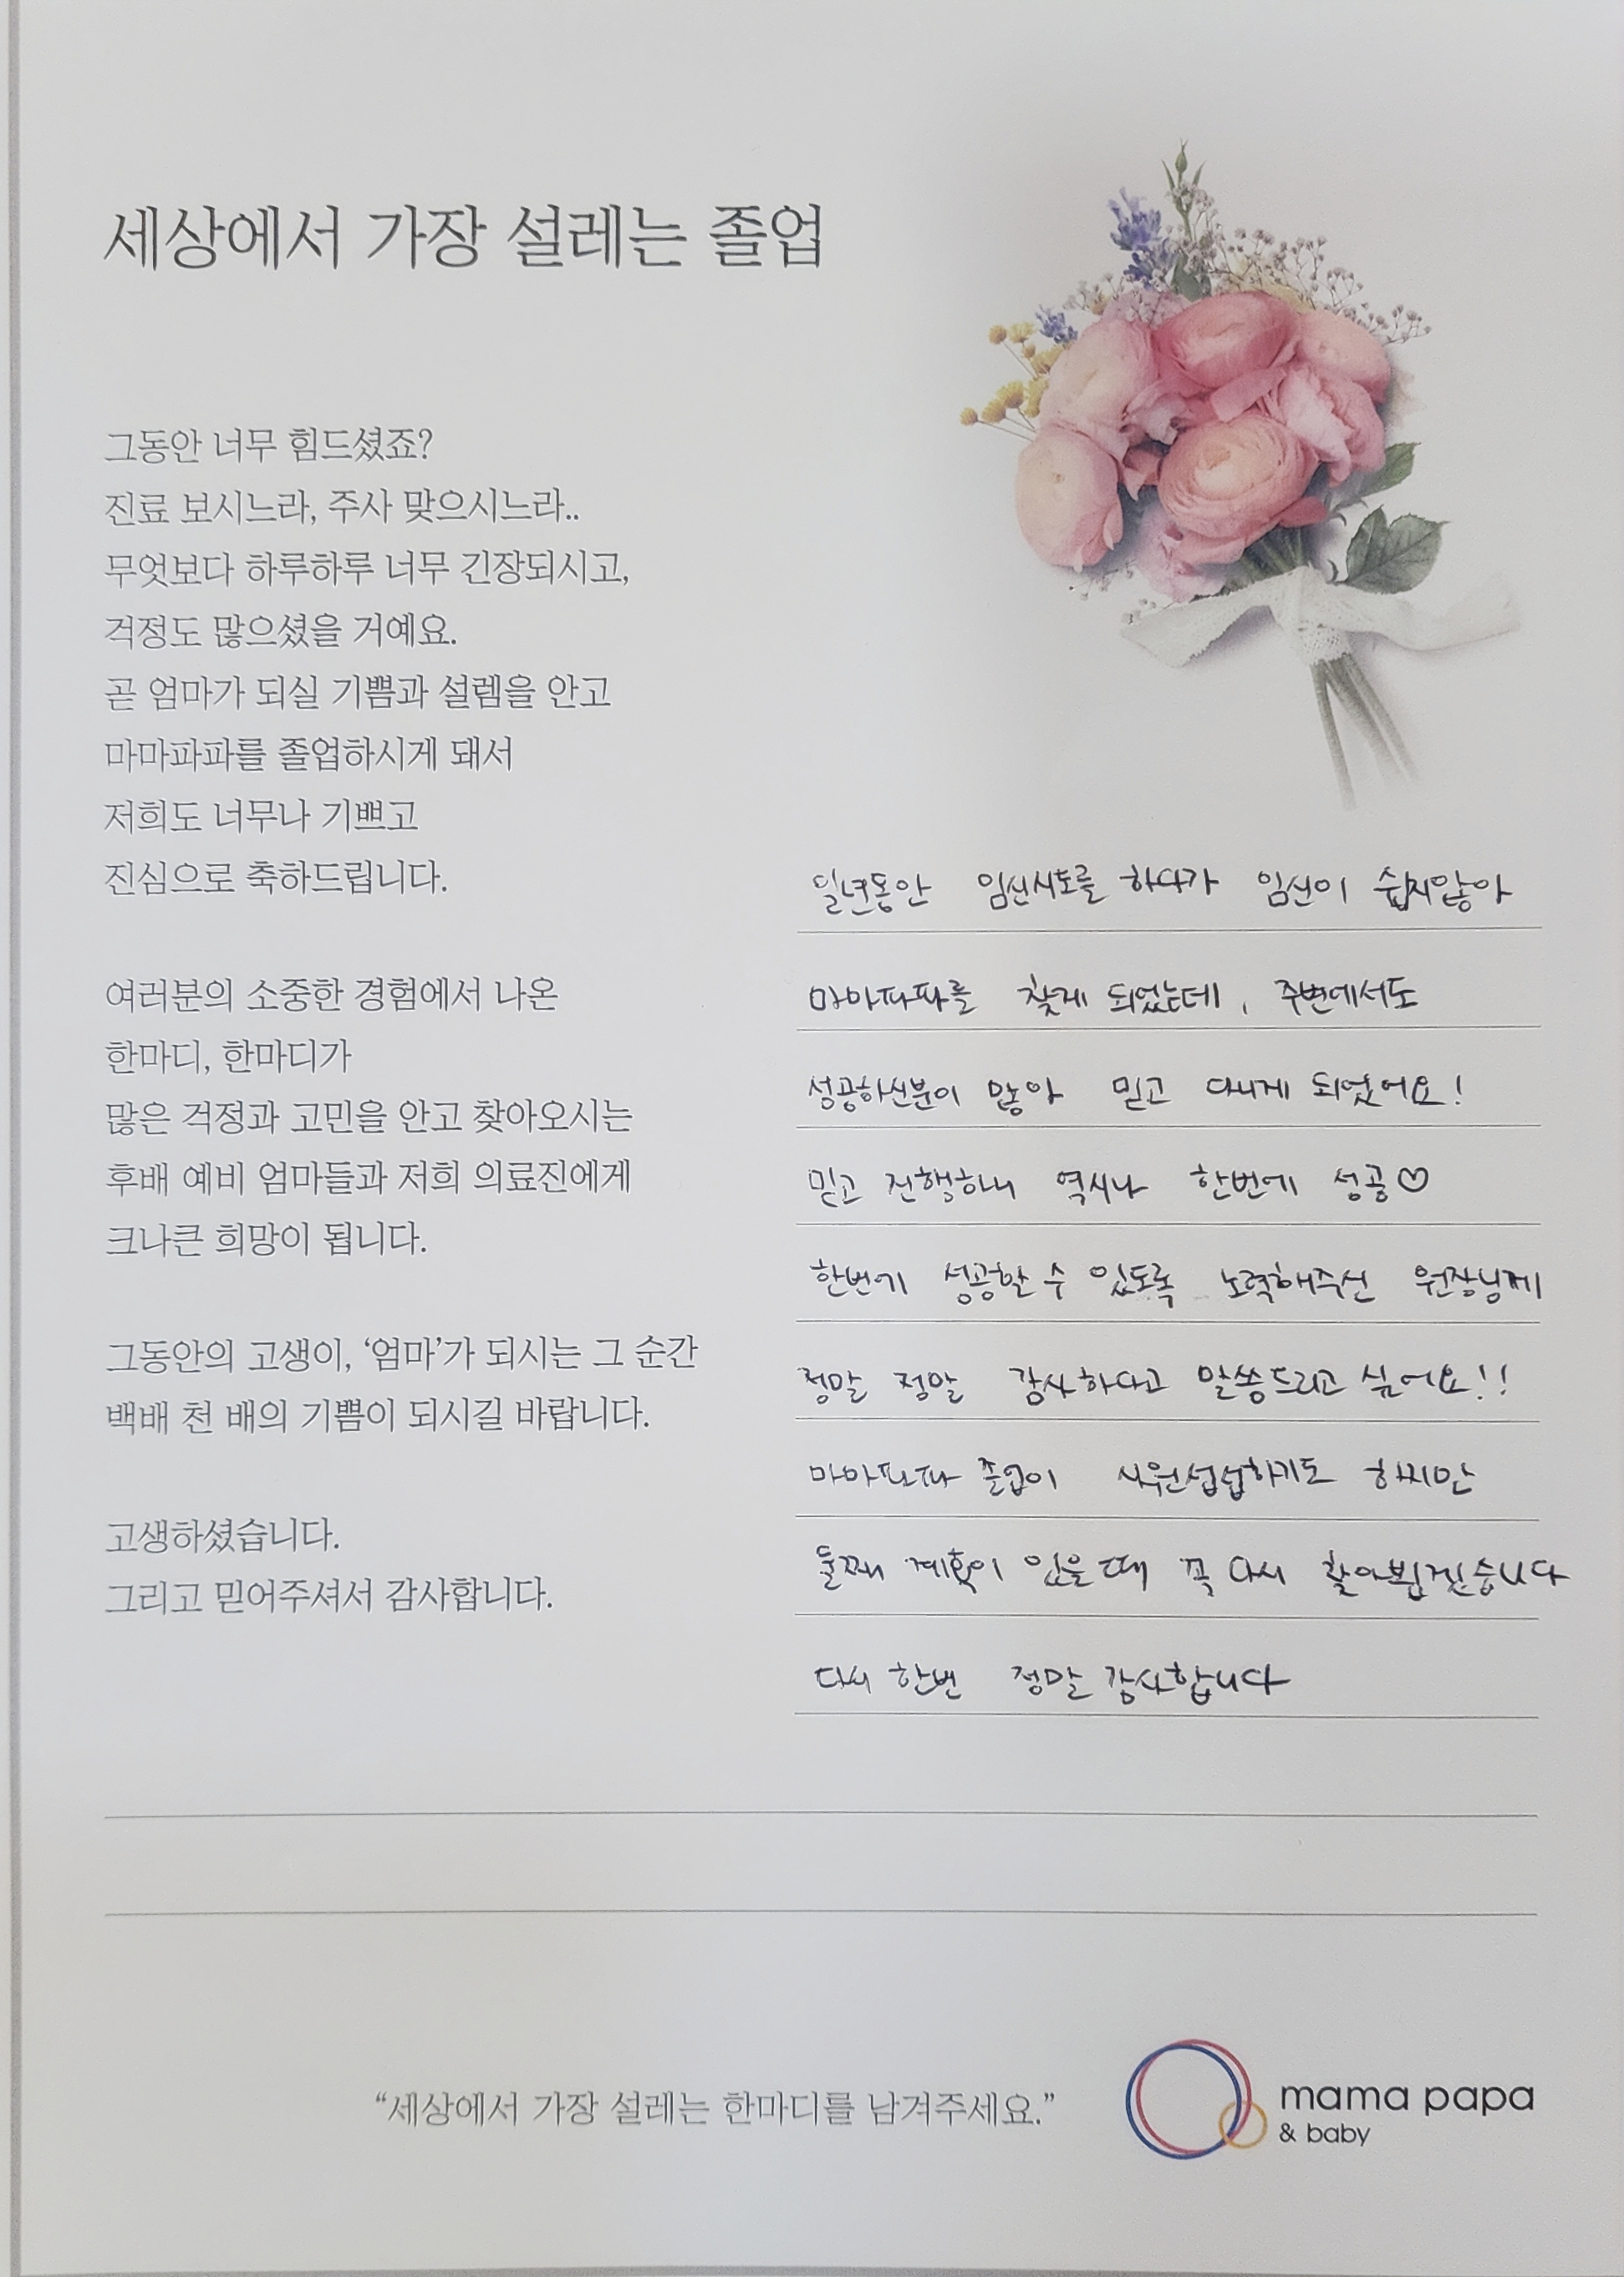 세상에서 가장 설레는 졸업
그동안 너무 힘드셨죠?
진료 보시느라, 주사 맞으시느라..
무엇보다 하루하루 너무 긴장되시고,
걱정도 많으셨을 거예요.
곧 엄마가 되실 기쁨과 설렘을 안고
마마파파를 졸업하시게 돼서
저희도 너무나 기쁘고
진심으로 축하드립니다.
여러분의 소중한 경험에서 나온
한마디, 한마디가
많은 걱정과 고민을 안고 찾아오시는
후배 예비 엄마들과 저희 의료진에게
크나큰 희망이 됩니다.
그동안의 고생이, ‘엄마’가 되시는 그 순간
백배 천 배의 기쁨이 되시길 바랍니다.
고생하셨습니다.
그리고 믿어주셔서 감사합니다.
일년동안 임신시도를 하다가 임신이 쉽지않아
마마파파를 찾게 되었는데, 주변에서도
성공하신분이 많아 믿고 다니게 되었어요!
믿고 진행하니 역시나 한번에 성공♡
한번에 성공할 수 있도록 노력해주신 원장님께
정말 정말 감사하다고 말씀드리고 싶어요!!
마마파파 졸업이 시원섭섭하기도 하지만
둘째 계획이 있을때 꼭 다시 찾아뵙겠습니다
다시 한번 정말 감사합니다
“세상에서 가장 설레는 한마디를 남겨주세요.”
mama papa
& baby